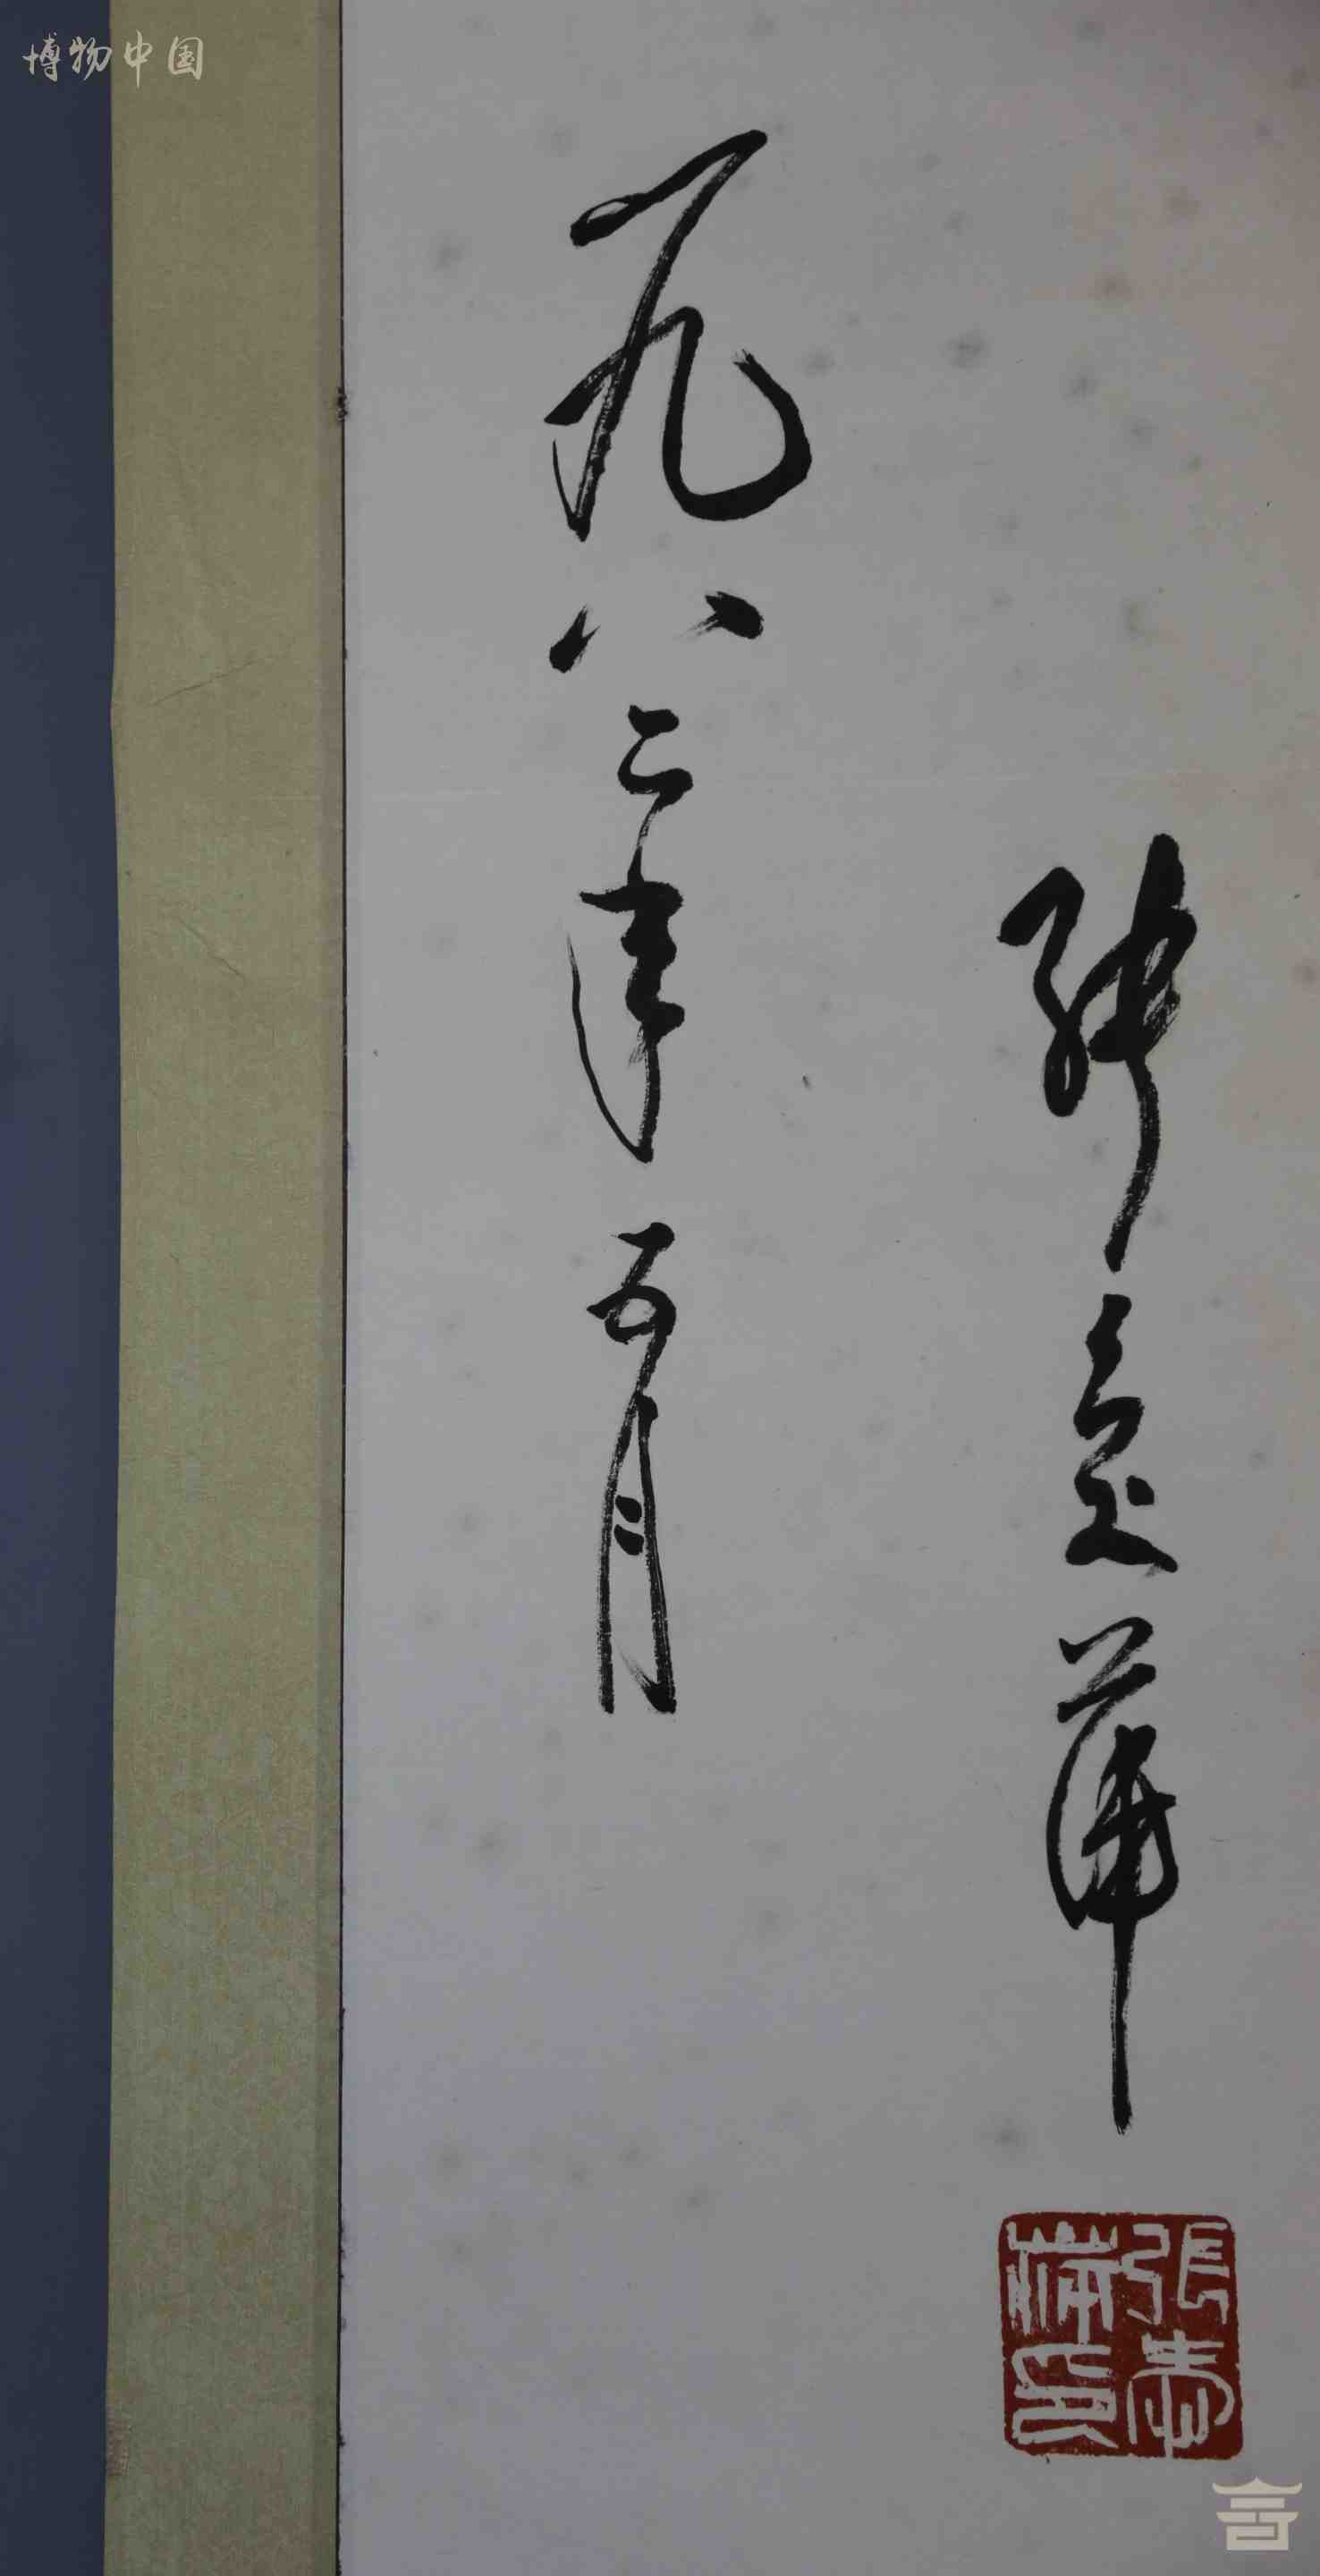 博物中国
张爱萍
一九八二年五月
張愛
萍印